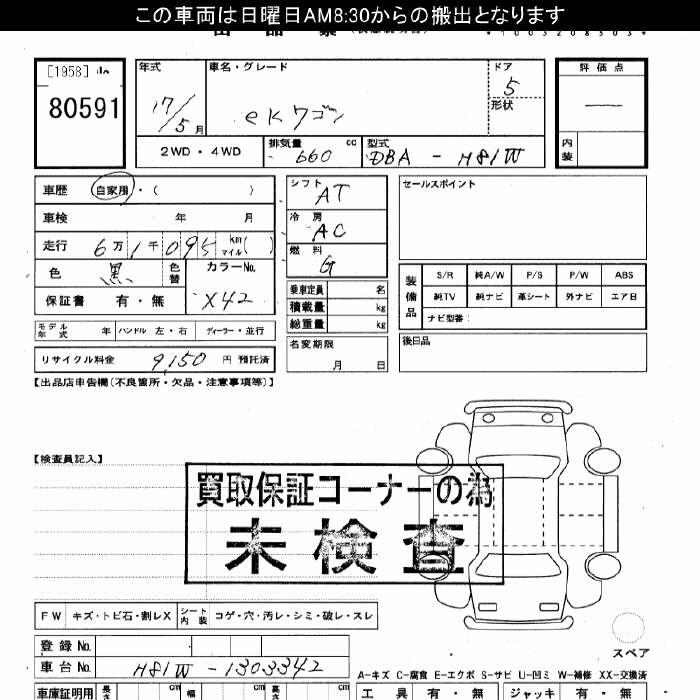 この車両は日曜日AM8:30からの搬出となります
[1958]
80591
年式
17/5月
車名・グレード
ekワゴン
ドア
5
形状
評価点
内装
2WD・4WD
排気量
660 cc
型式
DBA - H81W
車歴 自家用・( )
車検 年 月
走行 6万1千095 km マイル( )
色 黒 色替
カラーNo.
X42
保証書 有・無
シフト
AT
冷房
AC
燃料
G
乗車定員 名
積載量 kg
総重量 kg
名変期限
月 日
セールスポイント
装備品
S/R 純A/W P/S P/W ABS
純TV 純ナビ 革シート 外ナビ エア日
ナビ型番:
後日品
モデル年式 年 ハンドル 左・右 ディーラー・並行
リサイクル料金 9,150 円 預託済
【出品店申告欄(不良箇所・欠品・注意事項等)】
【検査員記入】
買取保証コーナーの為
未検査
FW キズ・トビ石・割レX シート内装 コゲ・穴・汚レ・シミ・破レ・スレ
スペア
登録No.
車台No. H81W - 1303342
A-キズ C-腐食 E-エクボ S-サビ U-凹ミ W-補修 XX-交換済
車庫証明用 長さ cm 幅 cm 高さ cm
工具 有・無 ジャッキ 有・無